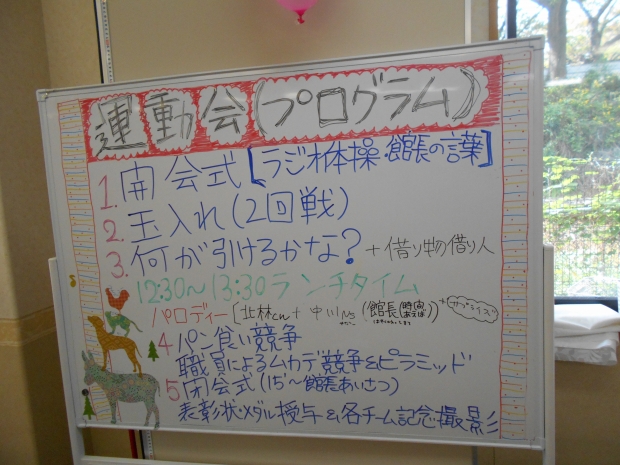 運動会(プログラム)
1. 開会式[ラジオ体操 館長の言葉]
2. 玉入れ(2回戦)
3. 何が引けるかな? +借り物借り人
12:30~13:30ランチタイム
パロディー[北林cn+中川Ns(館長(時間があえば))+サプライズ
4 パン食い競争
職員によるムカデ競争&ピラミッド
5 閉会式(15'~館長あいさつ)
表彰状・メダル授与&各チーム記念撮影